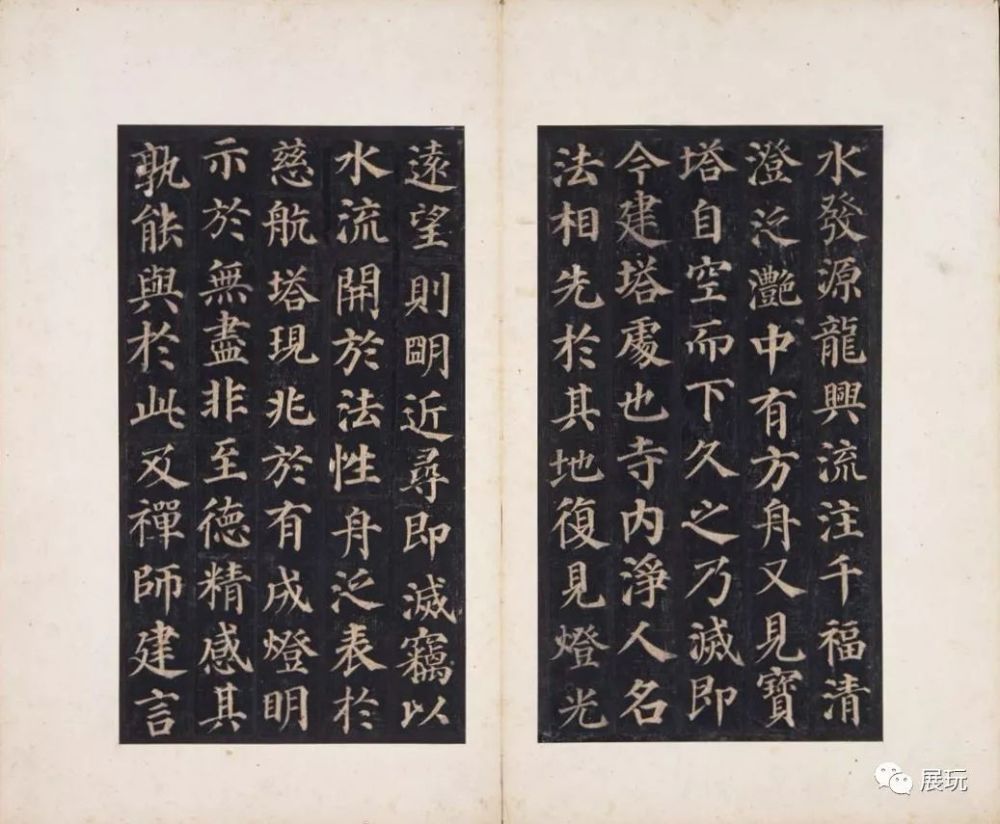 水發源龍興流注千福清
澄泛灔中有方舟又見寶
塔自空而下久之乃滅即
今建塔處也寺内淨人名
法相先於其地復見燈光
遠望則明近尋即滅竊以
水流開於法性舟泛表於
慈航塔現兆於有成燈明
示於無盡非至德精感其
孰能與於此及禪師建言
展玩